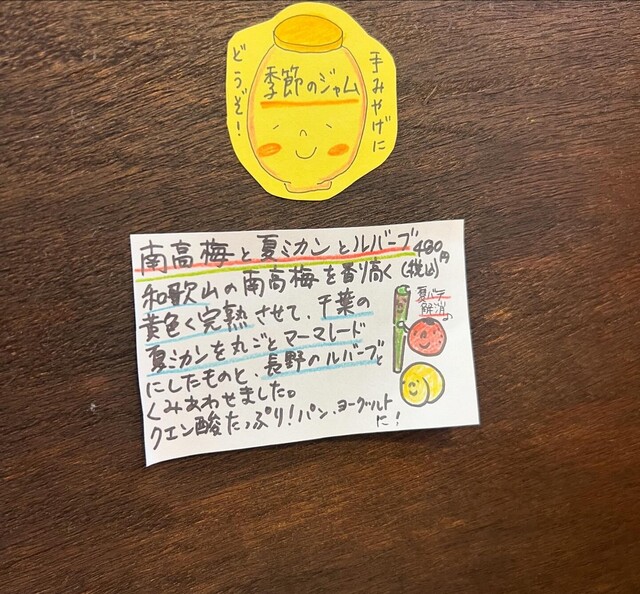 手みやげに
どうぞ!
季節のジャム
南高梅と夏ミカンとルバーブ
480円
(税込)
和歌山の南高梅を香り高く
黄色く完熟させて、千葉の
夏ミカンを丸ごとマーマレード
にしたものと、長野のルバーブと
くみあわせました。
クエン酸たっぷり!パン、ヨーグルト
に!
夏バテ
解消に